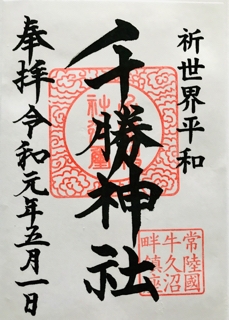 祈世界平和
千勝神社
奉拝 令和元年五月一日
常陸國
牛久沼
畔鎮座